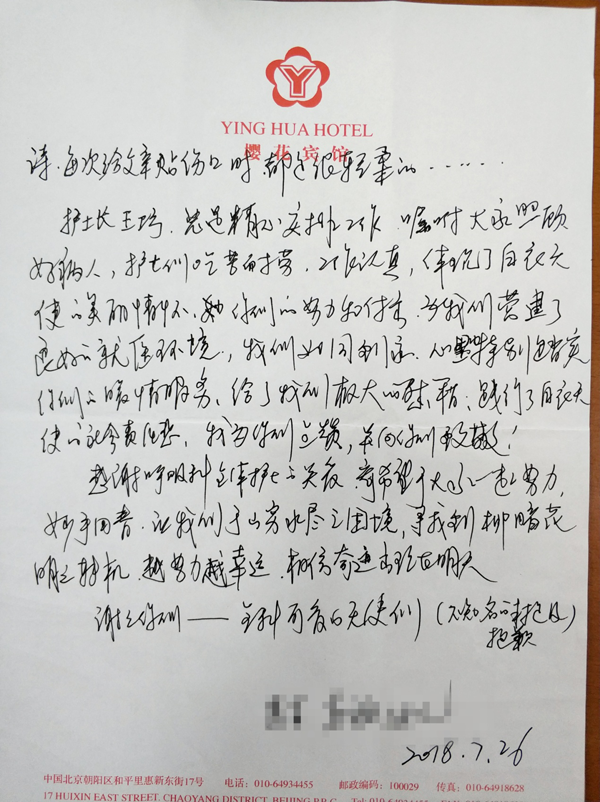 YING HUA HOTEL
樱花宾馆
诗,每次给文章贴伤口时,都是很轻柔的……
护士长王巧,总是精心安排工作,嘱咐大家照顾
好病人,护士们吃苦耐劳,工作认真,体现了白衣天
使的美丽情怀,你们的努力和付出,为我们营造了
良好的就医环境,我们如同到家,心里特别踏实
你们的暖情服务,给了我们极大的慰藉;践行了白衣天
使的社会责任感,我为你们点赞,并向你们致敬!
感谢呼吸科全体护士的关夜,寄希望于大家一起努力,
妙手回春,让我们于山穷水尽之困境,寻找到柳暗花
明之转机,越努力越幸运,相信奇迹出现在明天
谢谢你们——全科可爱的天使们(不知名的未提及
抱歉)
2018.7.26
中国北京朝阳区和平里惠新东街17号 电话:010-64934455 邮政编码:100029 传真:010-64918628
17 HUIXIN EAST STREET, CHAOYANG DISTRICT, BEIJING P.R.C.